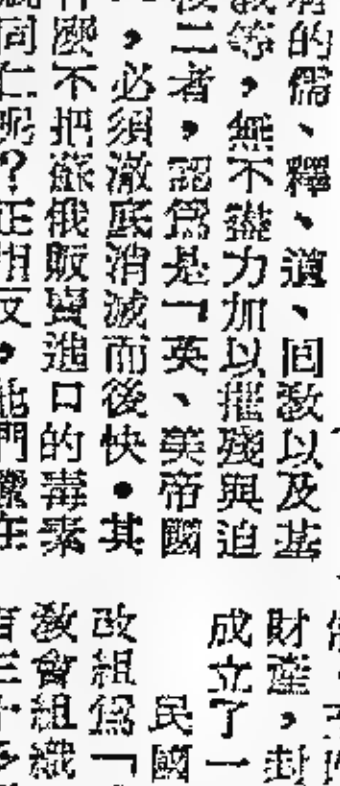 的儒、釋、道、回教以及基
等，無不盡力加以摧殘與迫
二者，認爲是「英、美帝國
，必須澈底消滅而後快。其
麼不把蘇俄販賣進口的毒素
同仁呢？正相反，他們
財產，封
成立了一
民國
改組爲「
教會組織